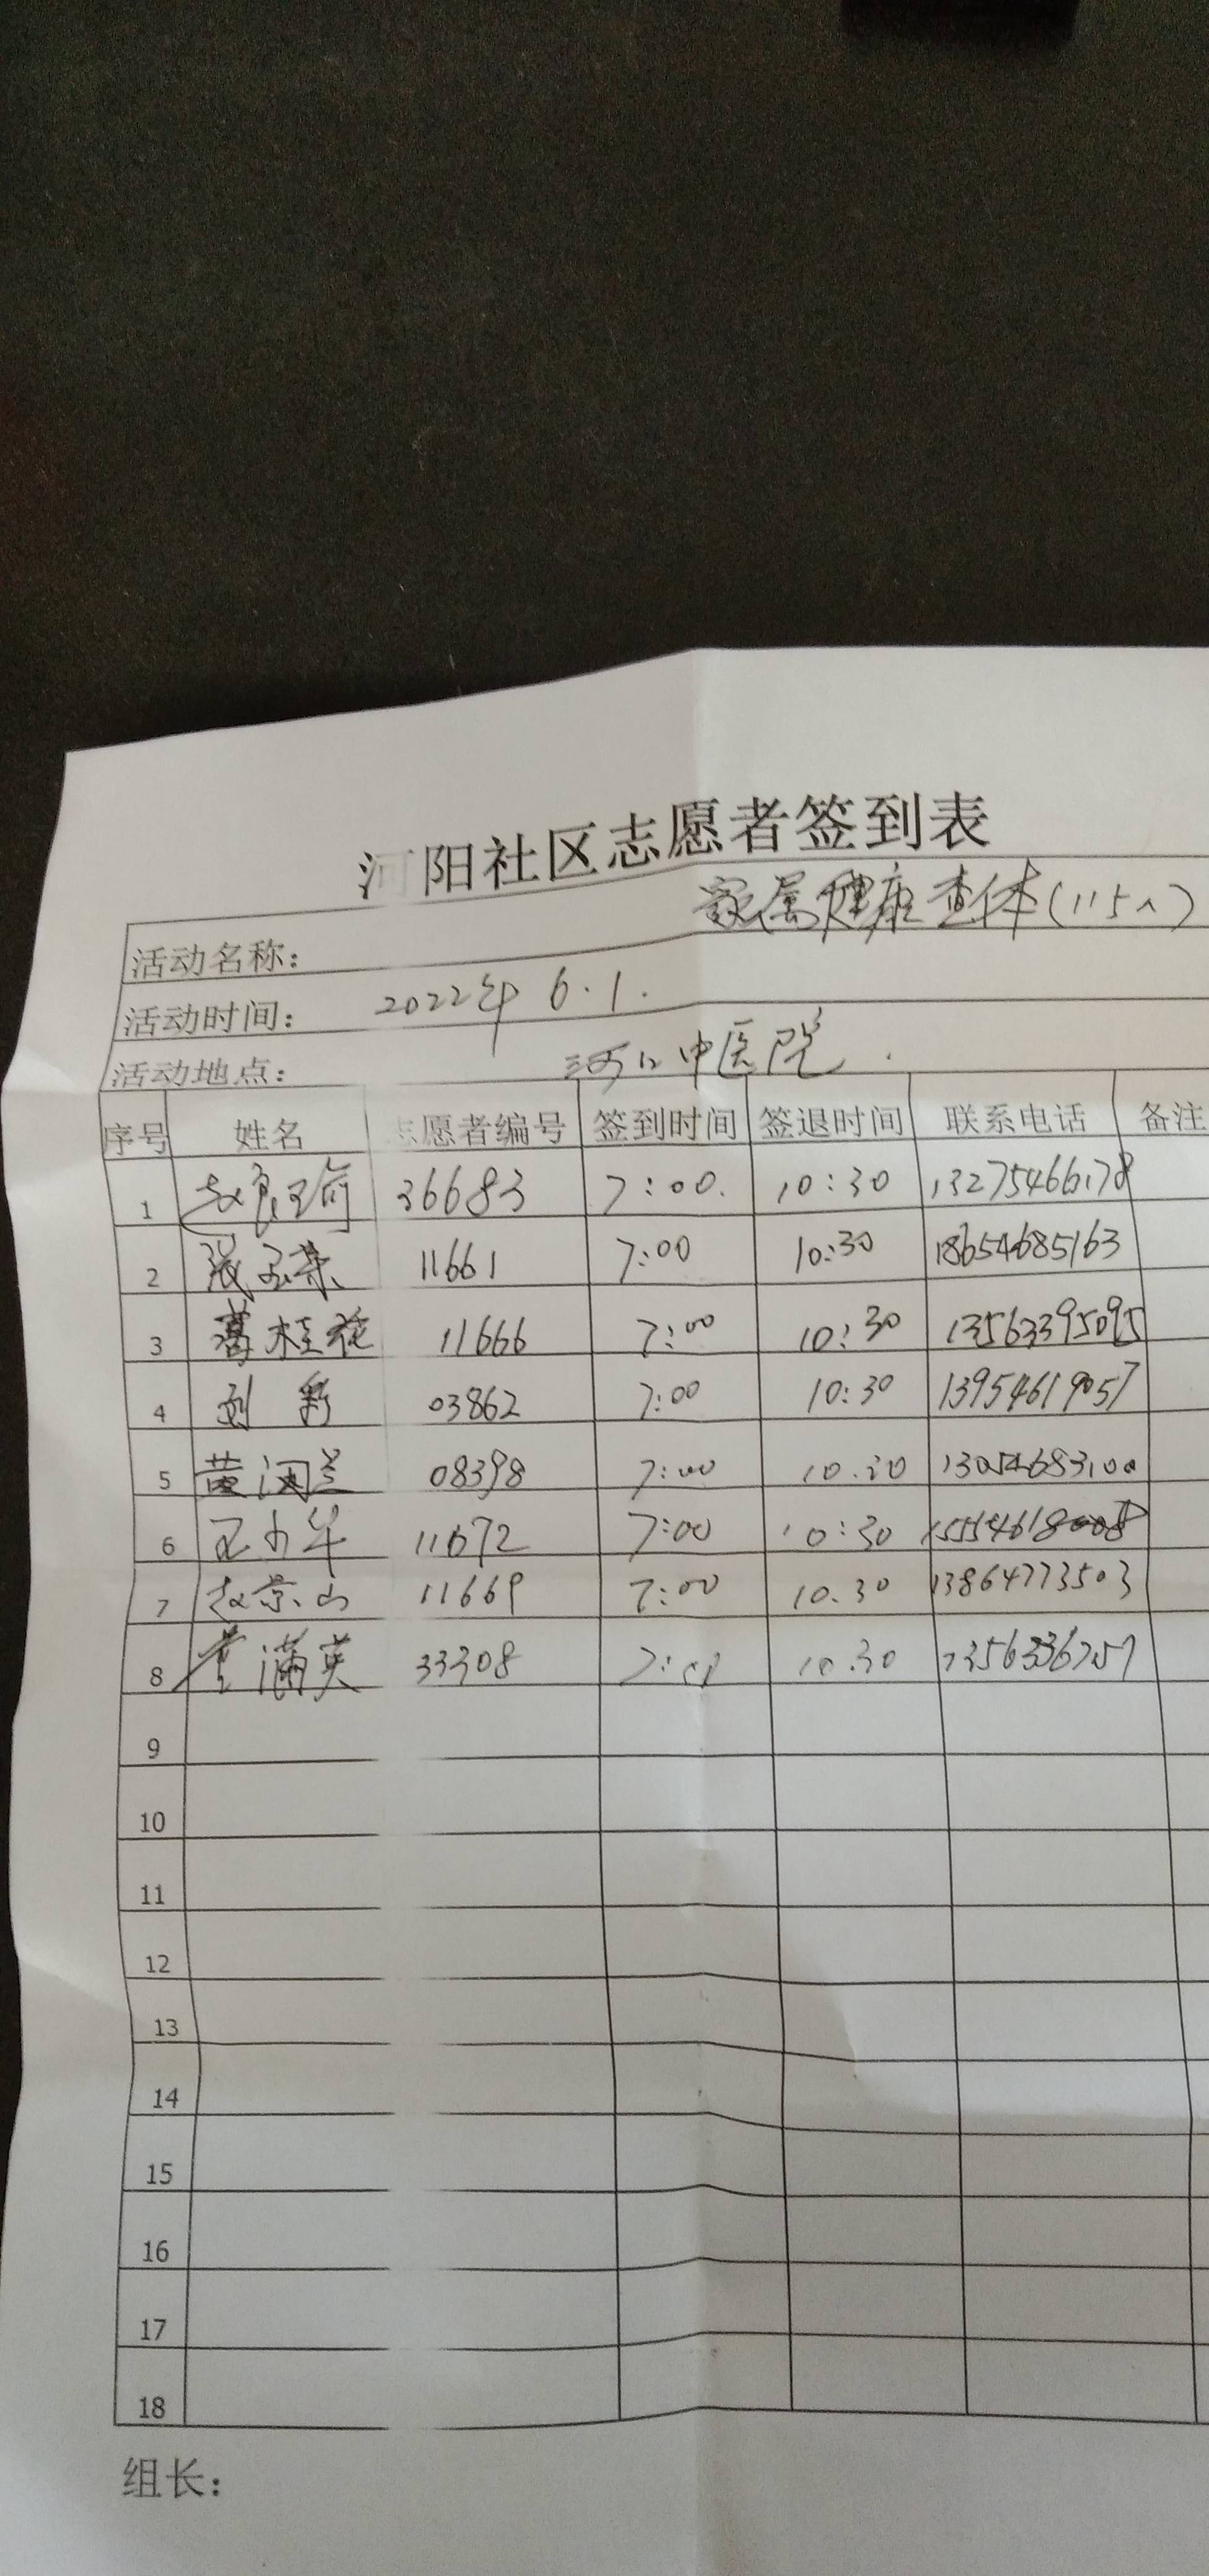 河阳社区志愿者签到表
活动名称： 家属健康查体（115人）
活动时间： 2022年 6.1.
活动地点： 河口中医院.
序号 姓名 志愿者编号 签到时间 签退时间 联系电话 备注
1 赵良瑜 36683 7:00. 10:30 13275466178
2 张玉荣 11661 7:00 10:30 18654685163
3 葛桂花 11666 7:00 10:30 13563395095
4 刘彩 03862 7:00 10:30 13954619057
5 黄润兰 08398 7:00 10.30 13054683100
6 11672 7:00 10:30
7 赵京山 11669 7:00 10.30 13864773503
8 满英 33308 10.30
9
10
11
12
13
14
15
16
17
18
组长：